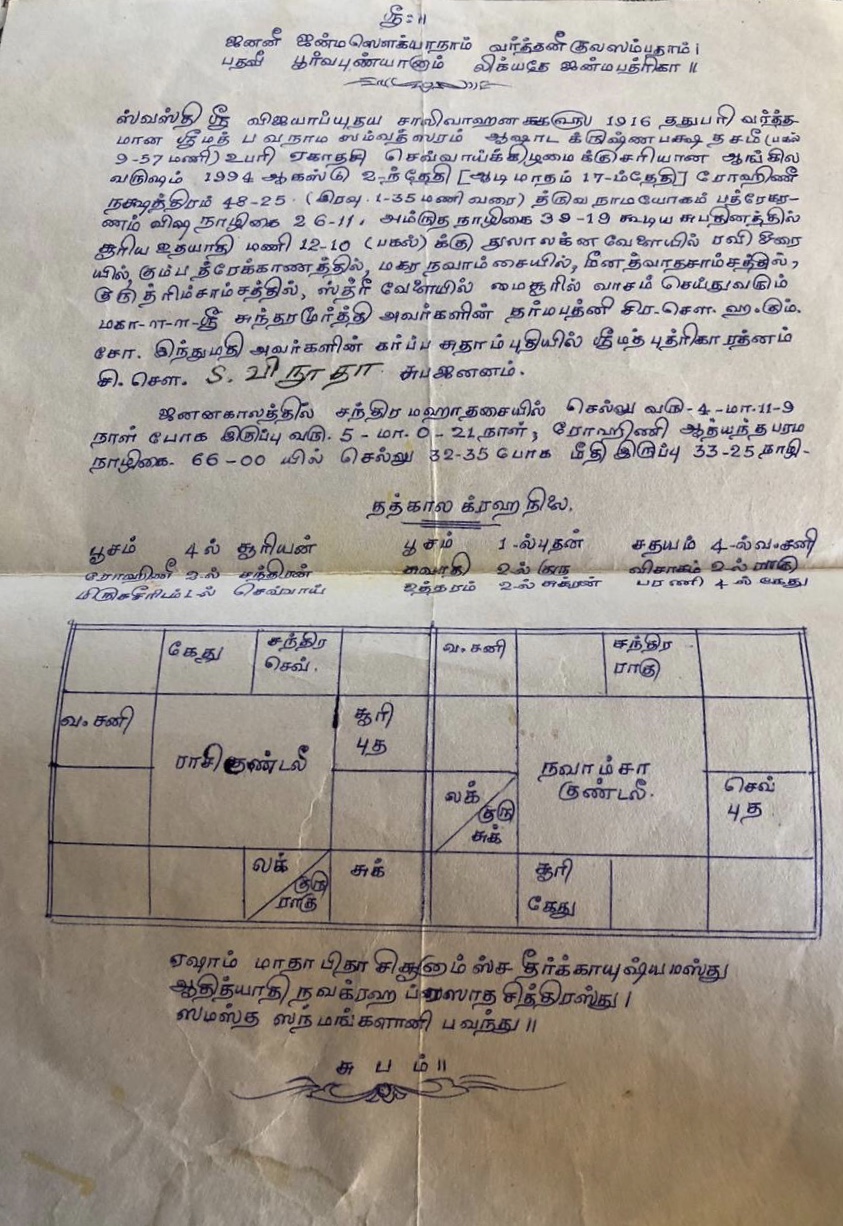 ஸ்ரீ:॥
ஜனனீ ஜன்மஸௌக்யாநாம் வர்த்தனீ குலஸம்பதாம் ।
பதவீ பூர்வபுண்யானாம் லிக்யதே ஜன்மபத்ரிகா ॥
ஸ்வஸ்தி ஸ்ரீ விஜயாப்யுதய சாலிவாஹன 1916 ததுபரி வர்த்த-
மான ஸ்ரீமத் பவநாம ஸம்வத்ஸரம் ஆஷாட க்ருஷ்ணபக்ஷ தசமீ (பகல்
9-57 மணி) உபரி ஏகாதசி செவ்வாய்க்கிழமைக்குசரியான ஆங்கில
வருஷம் 1994 ஆகஸ்டு 2-ந்தேதி [ஆடி மாதம் 17-ம்தேதி] ரோஹிணீ
நக்ஷத்திரம் 48-25. (இரவு 1-35 மணி வரை) த்ருவ நாமயோகம் பத்ரேகர-
ணம் விஷ நாழிகை 26-11, அம்ருத நாழிகை 39-19 கூடிய சுபதினத்தில்
சூரிய உதயாதி மணி 12-10 (பகல்) க்கு துலாலக்ன வேளையில் ரவி ஹோரை
யில், கும்ப த்ரேக்காணத்தில், மகர நவாம்சையில், மீனத்வாதசாம்சத்தில்,
குரு த்ரிம்சாம்சத்தில், ஸ்த்ரீ வேளையில் மைசூரில் வாசம் செய்துவரும்
மகா-ள-ள-ஸ்ரீ சுந்தரமூர்த்தி அவர்களின் தர்மபத்னி சிர-சௌ-ஹ.கும்.
சோ. இந்துமதி அவர்களின் கர்ப்ப சுதாம்புதியில் ஸ்ரீமத் புத்ரிகா ரத்னம்
சி. சௌ. S. வினூதா சுபஜனனம்.
ஜனனகாலத்தில் சந்திர மஹாதசையில் செல்லு வரு-4-மா.11-9
நாள் போக இருப்பு வரு. 5-மா.0-21 நாள், ரோஹிணி ஆத்யந்த பரம
நாழிகை. 66-00 யில் செல்லு 32-35 போக மீதி இருப்பு 33-25 நாழி-
தத்கால க்ரஹ நிலை.
பூசம் 4ல் சூரியன் பூசம் 1-ல்புதன் சதயம் 4-ல்வ.சனி
ரோஹிணீ 2-ல் சந்திரன் சுவாதி 2ல் குரு விசாகம் 2ல் ராகு
மிருகசீரிடம் 1ல் செவ்வாய் உத்தரம் 2-ல் சுக்ரன் பரணி 4ல் கேது
கேது சந்திர வ.சனி சந்திர
செவ். ராகு
வ.சனி சூரி
புத
ராசிகுண்டலீ நவாம்சா
குண்டலீ.
லக் குரு செவ்
சுக் புத
லக் குரு சுக் சூரி
ராகு கேது
ஏஷாம் மாதா பிதா சிசூனாம் ஸ்ச தீர்க்காயுஷ்யமஸ்து
ஆதித்யாதி நவக்ரஹ ப்ரஸாத சித்திரஸ்து ।
ஸமஸ்த ஸந்மங்களானி பவந்து ॥
சு ப ம் ॥